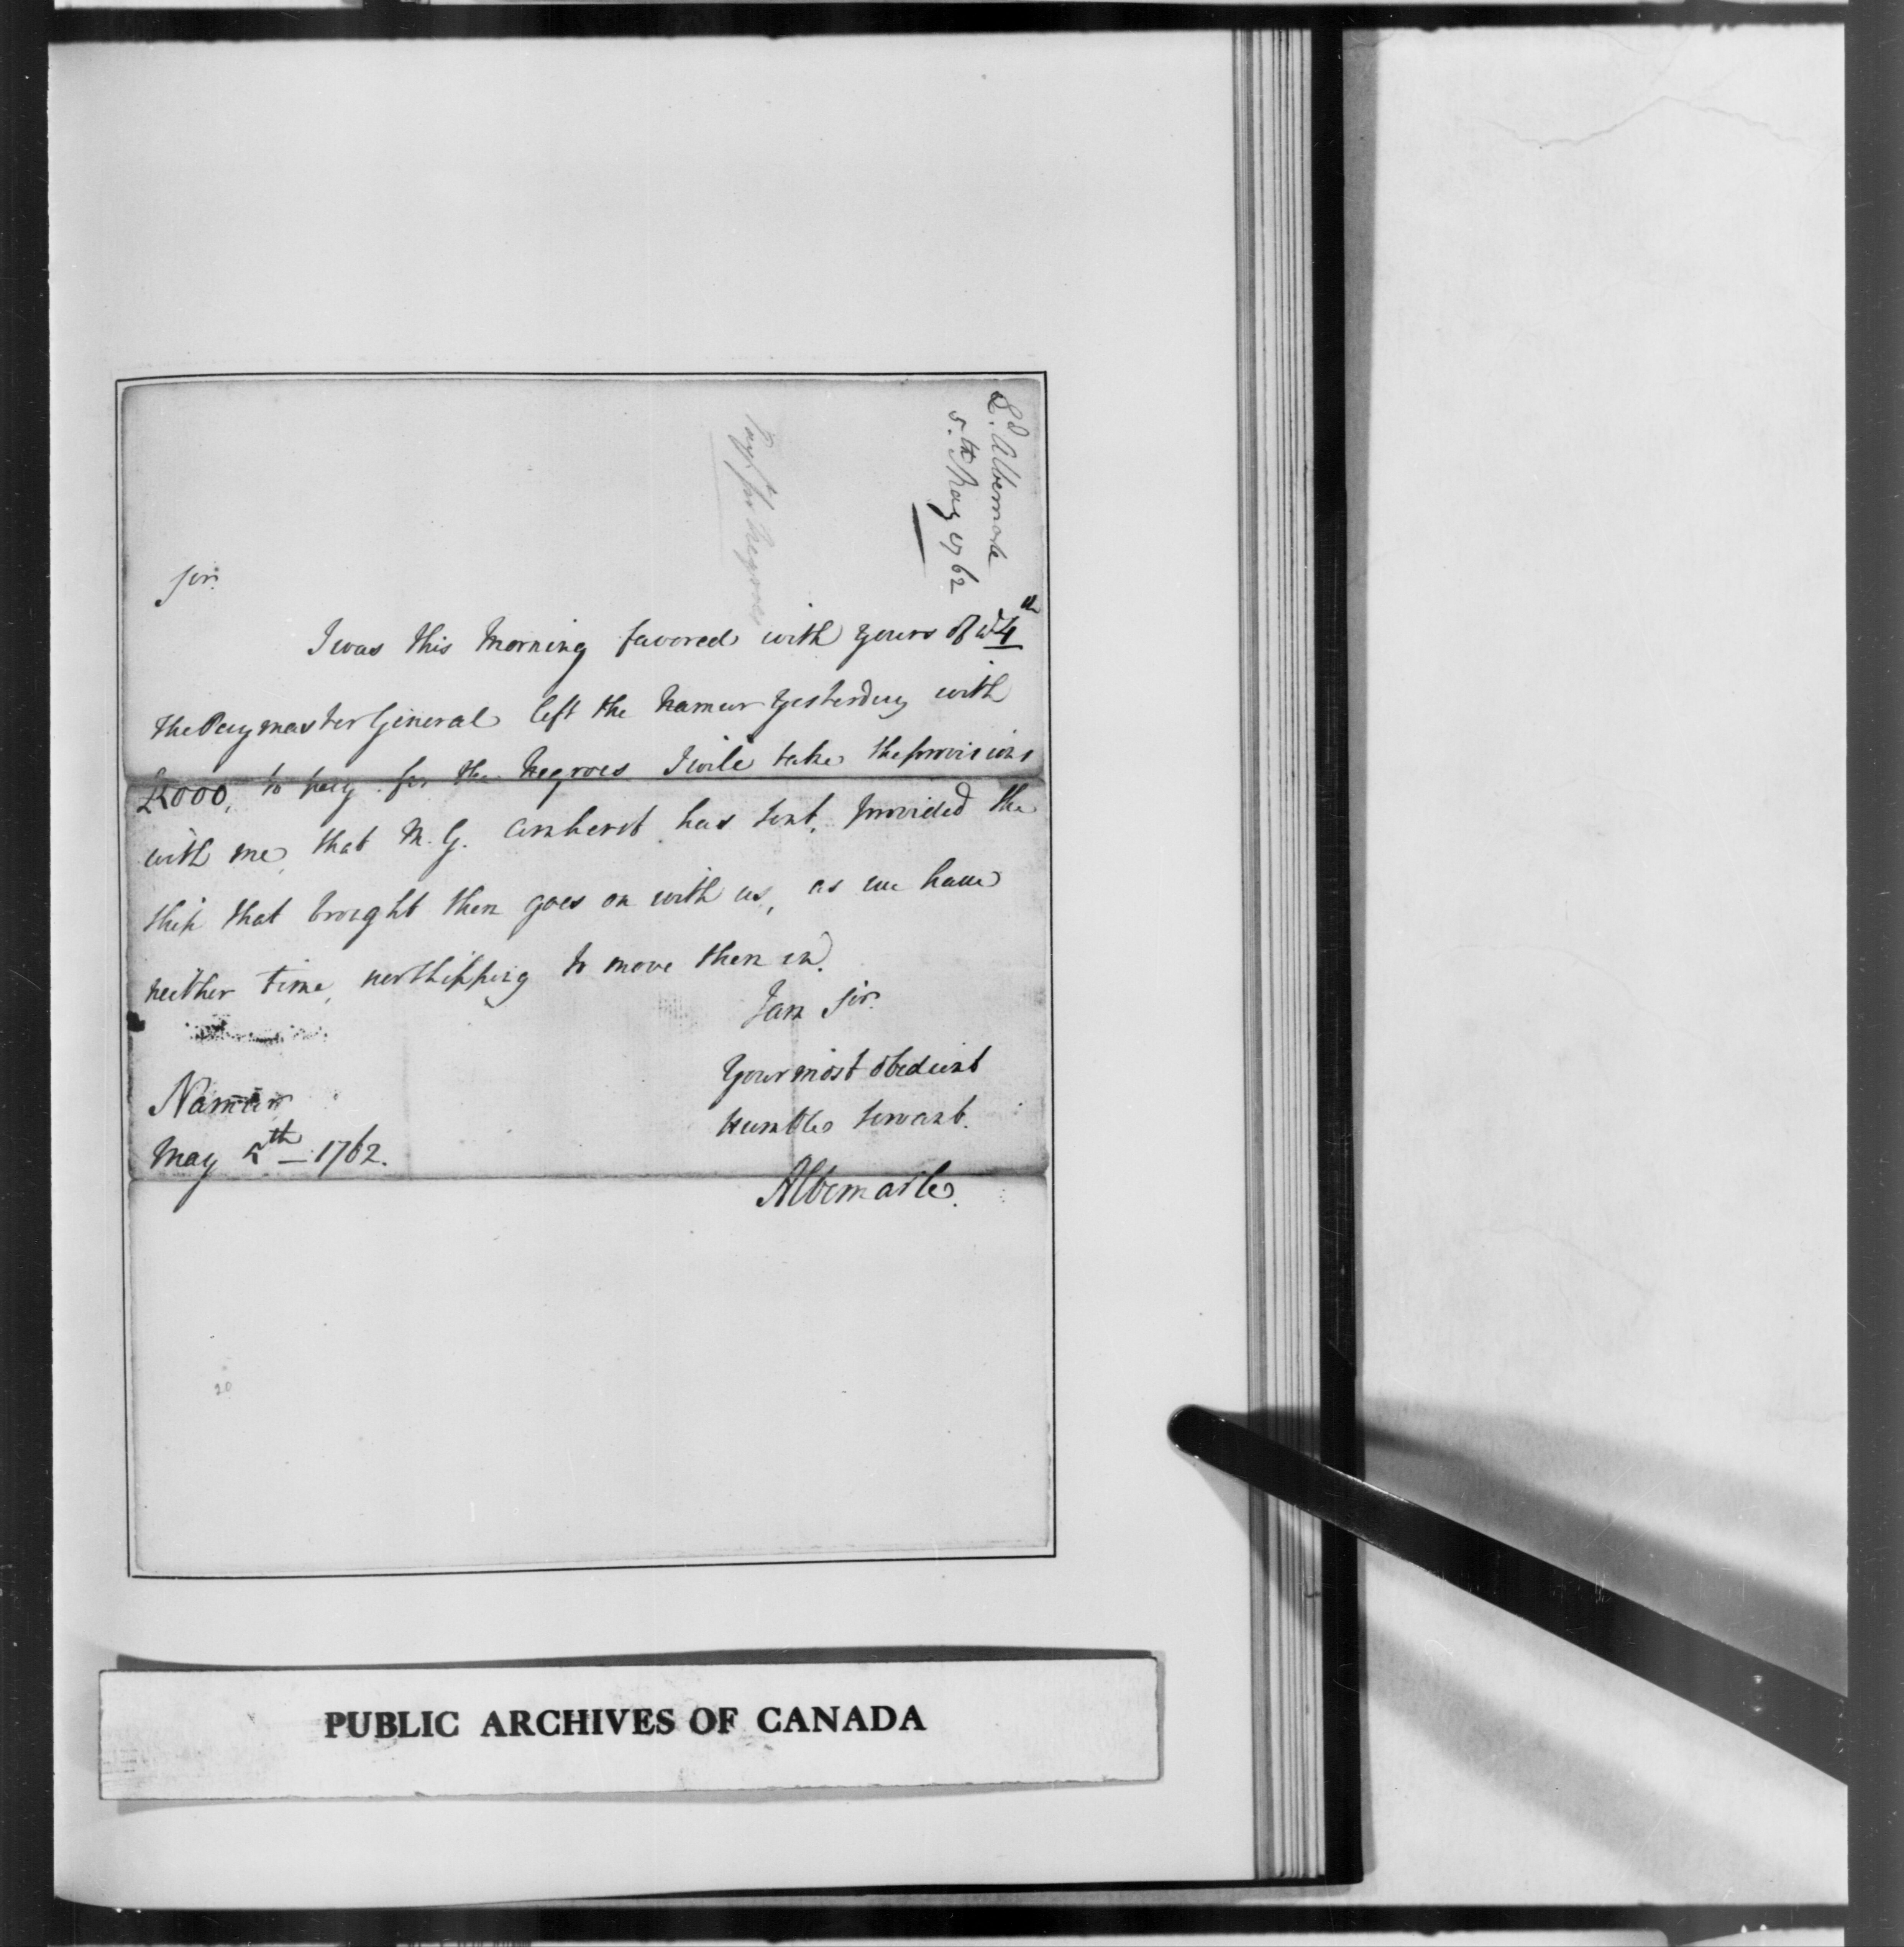 Ld. Albemarle
5.th May 1762
Pay for Negroes
Sir.
I was this Morning favored with yours of ye 4th
the Paymaster General left the Namur yesterday with
to pay for the Negroes I will take the provisions
with me, that M. G. Amherst has sent, provided the
ship that brought them goes on with us, as we have
neither time, nor shipping to move them in.
I am Sir.
Your most obedient
Humble Servant.
Namur
May 5th 1762.
Albemarle.
20
PUBLIC ARCHIVES OF CANADA